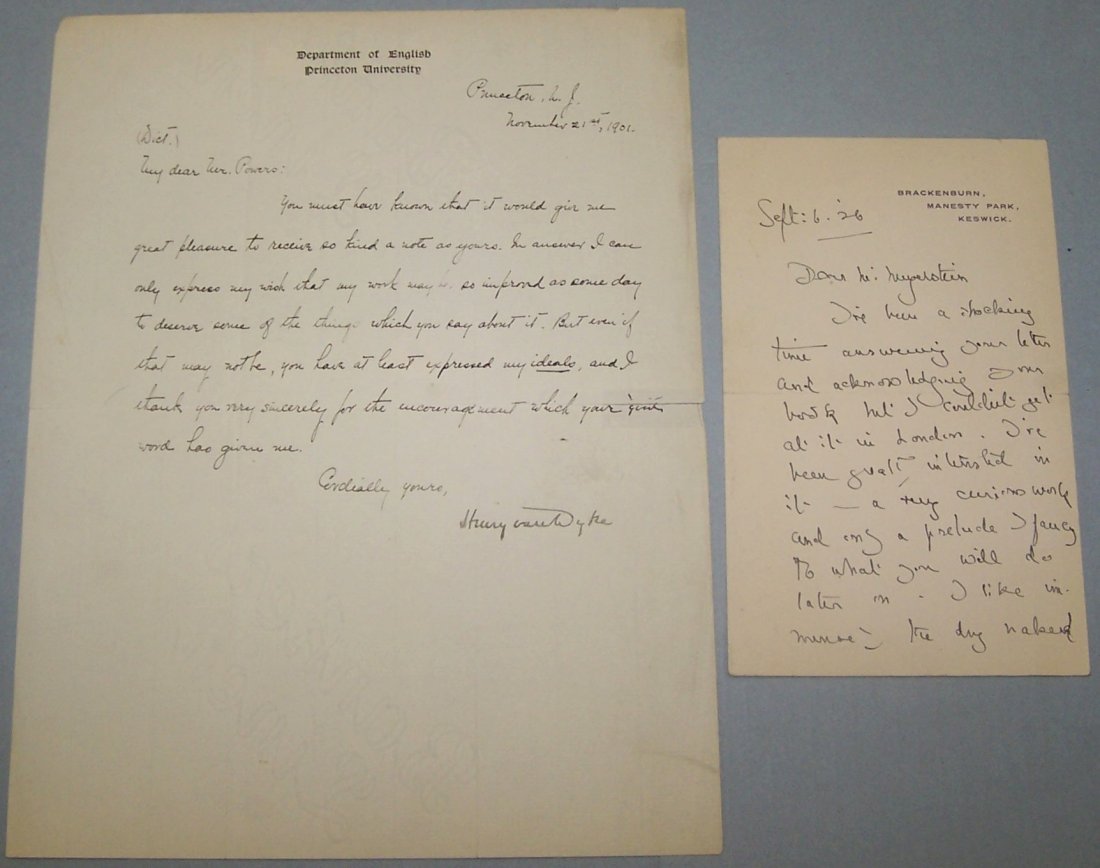 Department of English
Princeton University
Princeton, N. J.
November 21st, 1901.
(Dict.)
My dear Mr. Powers:
You must have known that it would give me
great pleasure to receive so kind a note as yours. In answer I can
only express my wish that my work may be so improved as some day
to deserve some of the things which you say about it. But even if
that may not be, you have at least expressed my ideals, and I
thank you very sincerely for the encouragement which your
word has given me.
Cordially yours,
Henry van Dyke
BRACKENBURN,
MANESTY PARK,
KESWICK.
Sept: 6. '26
Dear Mr
I've been a shocking
time answering your letter
and acknowledging your
book but I couldn't get
at it in London. I've
been greatly interested in
it — a very curious work
and only a prelude I fancy
to what you will do
later on. I like im-
mensely the dry naked